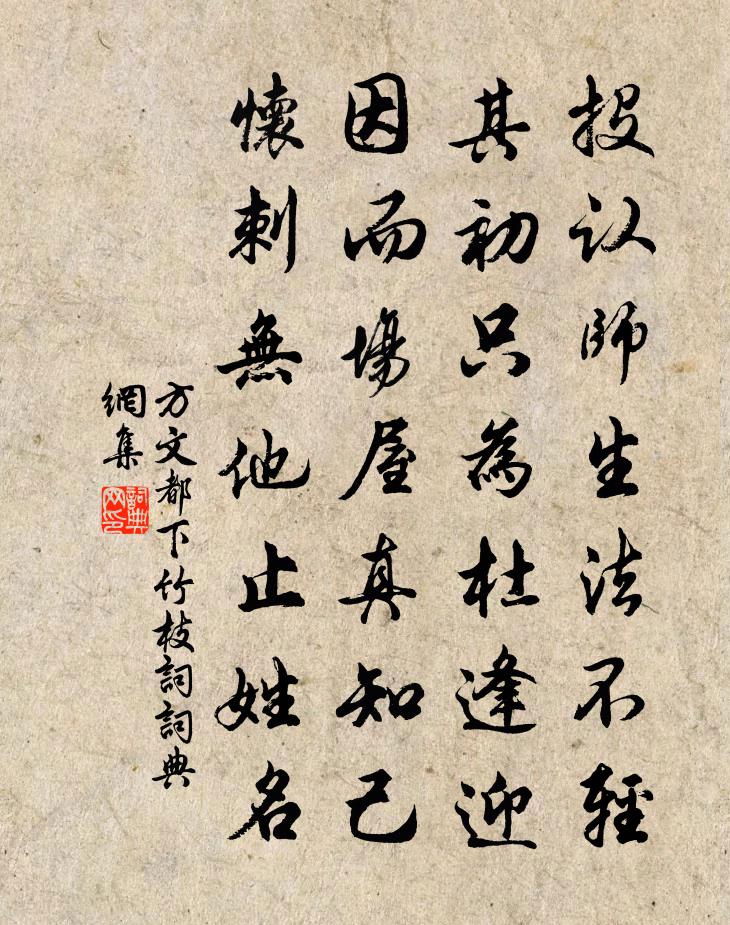 投认師生法不輕
其初只為杜逢迎
因而場屋真知己
懷刺無他止姓名
方文都下竹枝詞詞典
網集
詞典
网印